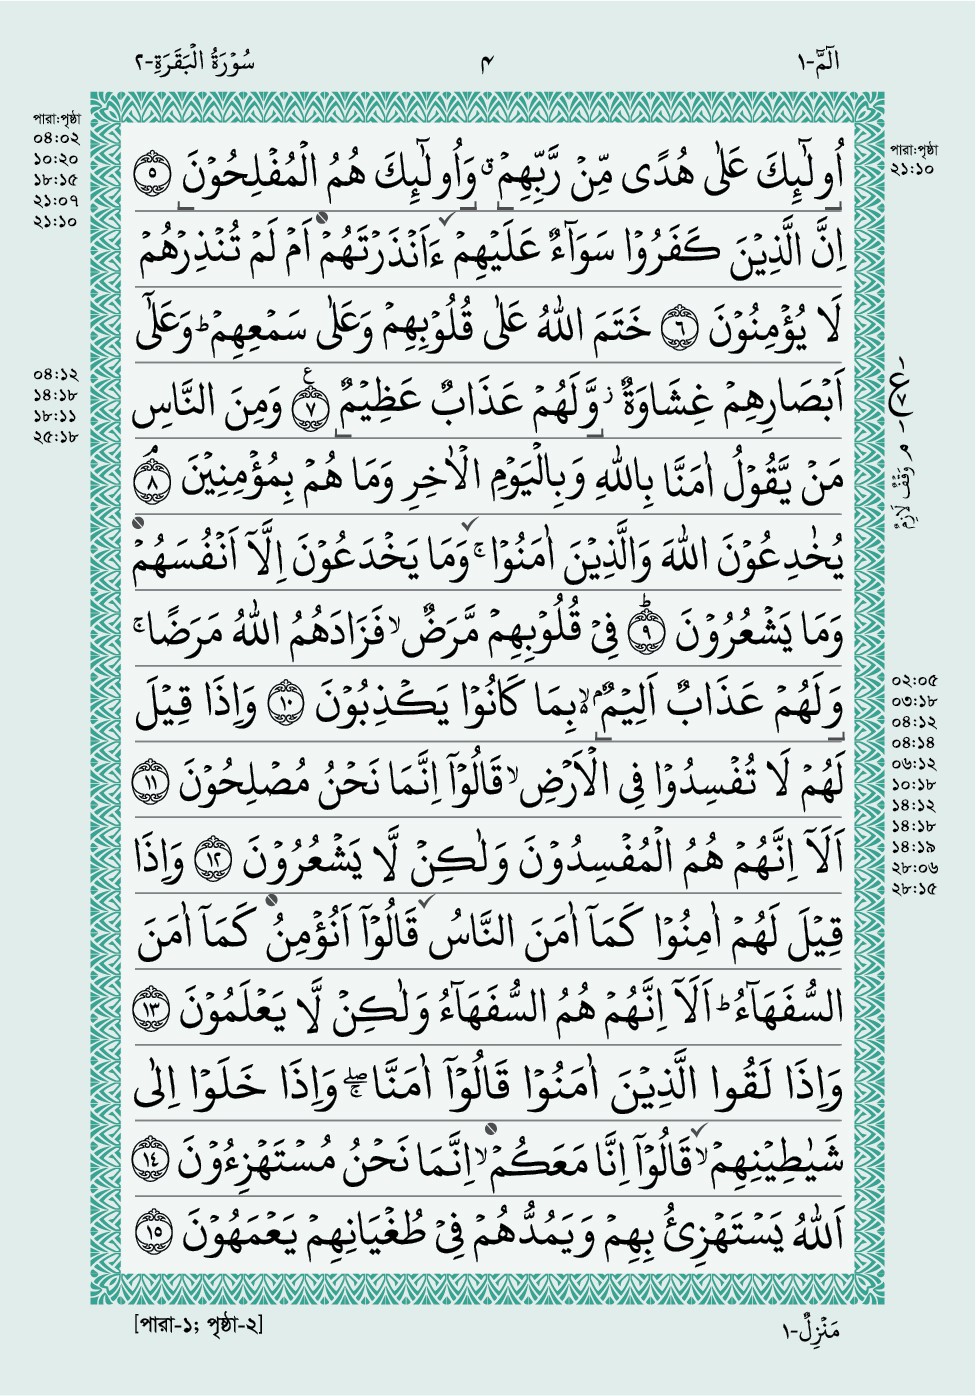 الٓمّٓ-١
٤
سُوْرَةُ الْبَقَرَةِ-٢
পারা:পৃষ্ঠা
০৪:০২
১০:২০
১৮:১৫
২১:০৭
২১:১০
পারা:পৃষ্ঠা
২১:১০
اُولٰٓئِكَ عَلٰى هُدًى مِّنْ رَّبِّهِمْ ۗ وَاُولٰٓئِكَ هُمُ الْمُفْلِحُوْنَ ٥
اِنَّ الَّذِيْنَ كَفَرُوْا سَوَآءٌ عَلَيْهِمْ ءَاَنْذَرْتَهُمْ اَمْ لَمْ تُنْذِرْهُمْ
لَا يُؤْمِنُوْنَ ٦ خَتَمَ اللّٰهُ عَلٰى قُلُوْبِهِمْ وَعَلٰى سَمْعِهِمْ ؕ وَعَلٰٓى
اَبْصَارِهِمْ غِشَاوَةٌ ز وَّلَهُمْ عَذَابٌ عَظِيْمٌ ٧ وَمِنَ النَّاسِ
مَنْ يَّقُوْلُ اٰمَنَّا بِاللّٰهِ وَبِالْيَوْمِ الْاٰخِرِ وَمَا هُمْ بِمُؤْمِنِيْنَ ۘ ٨
يُخٰدِعُوْنَ اللّٰهَ وَالَّذِيْنَ اٰمَنُوْا ۚ وَمَا يَخْدَعُوْنَ اِلَّآ اَنْفُسَهُمْ
وَمَا يَشْعُرُوْنَ ؕ ٩ فِيْ قُلُوْبِهِمْ مَّرَضٌ ۙ فَزَادَهُمُ اللّٰهُ مَرَضًا ۚ
وَلَهُمْ عَذَابٌ اَلِيْمٌۢ ۙ بِمَا كَانُوْا يَكْذِبُوْنَ ١٠ وَاِذَا قِيْلَ
لَهُمْ لَا تُفْسِدُوْا فِى الْاَرْضِ ۙ قَالُوْٓا اِنَّمَا نَحْنُ مُصْلِحُوْنَ ١١
اَلَآ اِنَّهُمْ هُمُ الْمُفْسِدُوْنَ وَلٰكِنْ لَّا يَشْعُرُوْنَ ١٢ وَاِذَا
قِيْلَ لَهُمْ اٰمِنُوْا كَمَآ اٰمَنَ النَّاسُ قَالُوْٓا اَنُؤْمِنُ كَمَآ اٰمَنَ
السُّفَهَآءُ ؕ اَلَآ اِنَّهُمْ هُمُ السُّفَهَآءُ وَلٰكِنْ لَّا يَعْلَمُوْنَ ١٣
وَاِذَا لَقُوا الَّذِيْنَ اٰمَنُوْا قَالُوْٓا اٰمَنَّا ۖۚ وَاِذَا خَلَوْا اِلٰى
شَيٰطِيْنِهِمْ ۙ قَالُوْٓا اِنَّا مَعَكُمْ ۙ اِنَّمَا نَحْنُ مُسْتَهْزِءُوْنَ ١٤
اَللّٰهُ يَسْتَهْزِئُ بِهِمْ وَيَمُدُّهُمْ فِيْ طُغْيَانِهِمْ يَعْمَهُوْنَ ١٥
০৪:১২
১৪:১৮
১৮:১১
২৫:১৮
ع
٧
م وَقْفْ لَازِمْ
০২:০৫
০৩:১৮
০৪:১২
০৪:১৪
০৬:১২
১০:১৮
১৪:১২
১৪:১৮
১৪:১৯
২৮:০৬
২৮:১৫
مَنْزِلٌ-١
[পারা-১; পৃষ্ঠা-২]